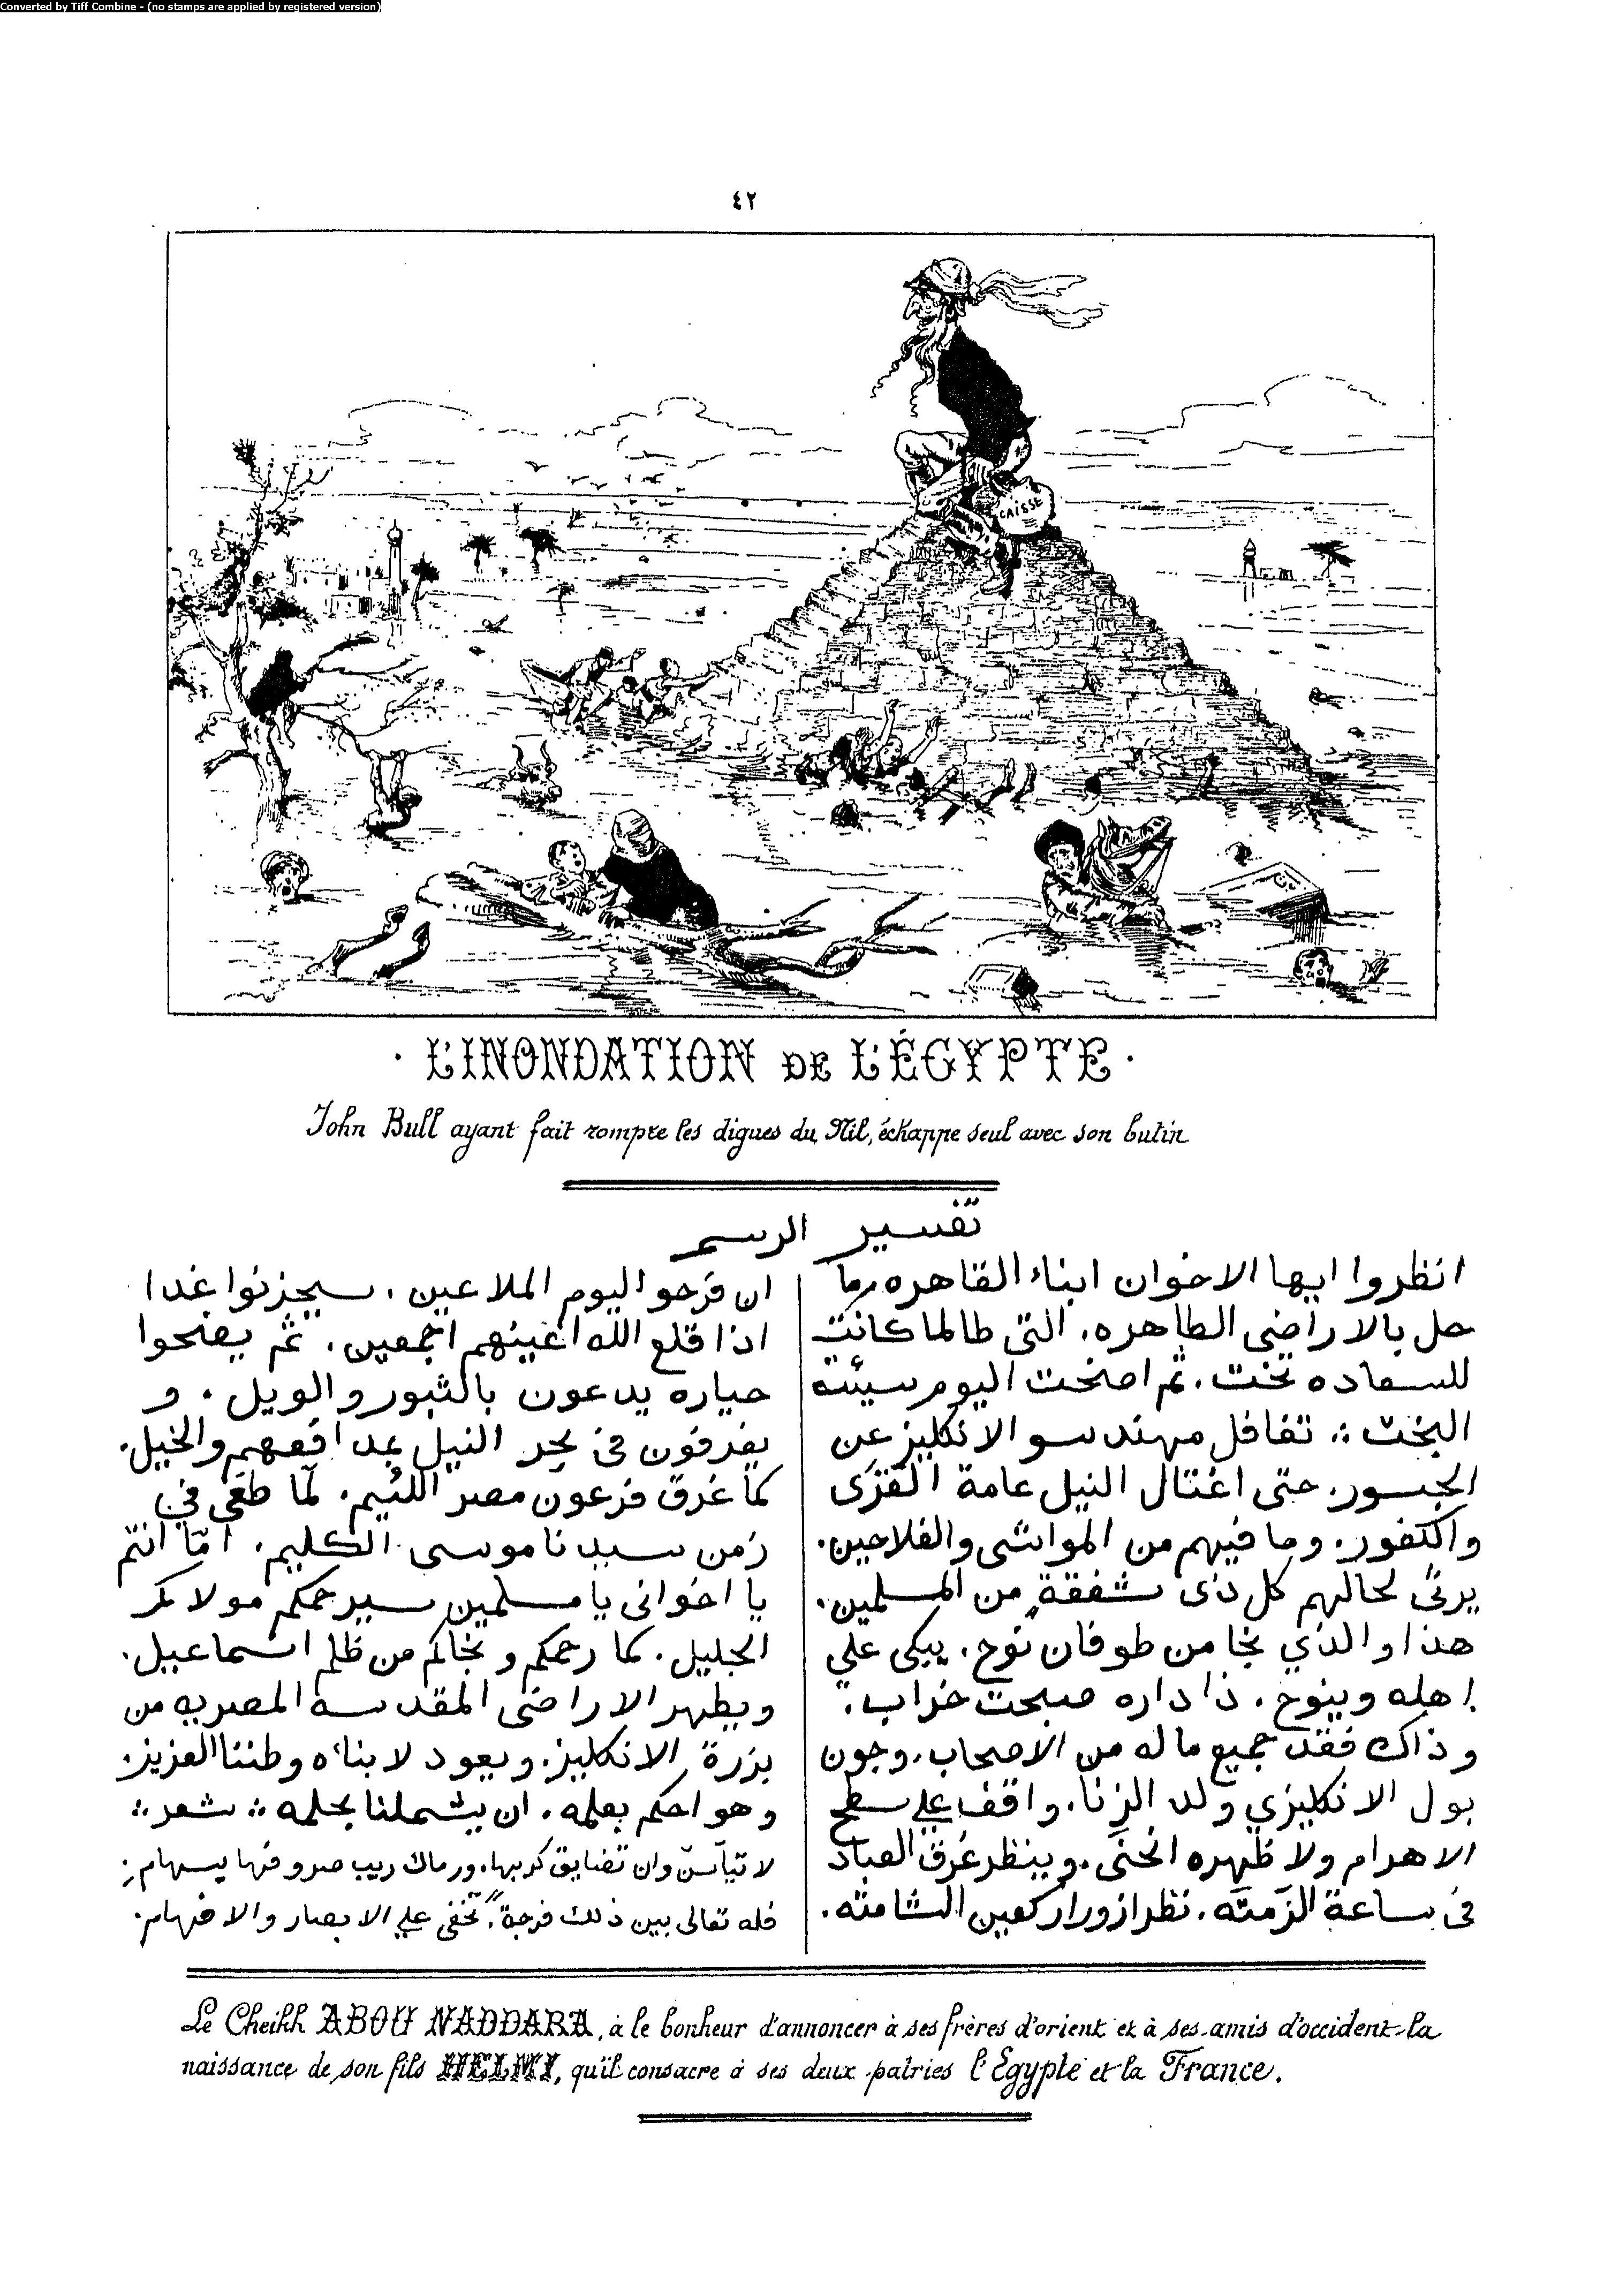 Converted by Tiff Combine - (no stamps are applied by registered version)
٤٢
CAISSE
L'INONDATION DE L'ÉGYPTE
John Bull ayant fait rompre les digues du Nil, échappe seul avec son butin
تفسير الرسم
انظروا ايها الاخوان ابناء القاهره، ما
حل بالاراضى الطاهره، التى طالما كانت
للسعاده تخت، ثم اضحت اليوم سيئة
البخت ؞ تغافل مهندسو الانكليز عن
الجسور، حتى اغتال النيل عامة القرى
والكفور، وما فيهم من المواشى والفلاحين،
يرثى لحالهم كل ذى شفقة من المسلمين،
هذا والذي نجا من طوفان نوح، يبكى علي
اهله وينوح، ذا داره صبحت خراب،
وذاك فقد جميع ماله من الاصحاب، وجون
بول الانكليزي ولد الزنا، واقف علي سطح
الاهرام ولا ظهره انحنى، وينظر غرق العباد
فى ساعة الزمته، نظر ازورار كعين الشامته،
ان فرحو اليوم الملاعين، سيحزنوا غدا
اذا قلع الله اعينهم اجمعين، ثم يصبحوا
حياره يدعون بالثبور والويل، و
يغرقون فى بحر النيل بمدافعهم والخيل،
كما غرق فرعون مصر اللئيم، لما طغى في
زمن سيدنا موسى الكليم، اما انتم
يا اخوانى يا مسلمين سيرحمكم مولاكم
الجليل، كما رحمكم ونجاكم من ظلم اسماعيل،
ويطهر الاراضى المقدسه المصريه من
بزرة الانكليز، ويعود لابنائه وطننا العزيز،
وهو احكم بعلمه، ان يشملنا بحلمه ؞ شعر ؞
لا تيأسنّ وان تضايق كربها، ورماك ريب صروفها بسهام؛
فله تعالى بين ذلك فرجة، تخفى علي الابصار والافهام،
Le Cheikh ABOU NADDARA, à le bonheur d'annoncer à ses frères d'orient et à ses amis d'occident la
naissance de son fils HELMI, qu'il consacre à ses deux patries l'Egypte et la France.